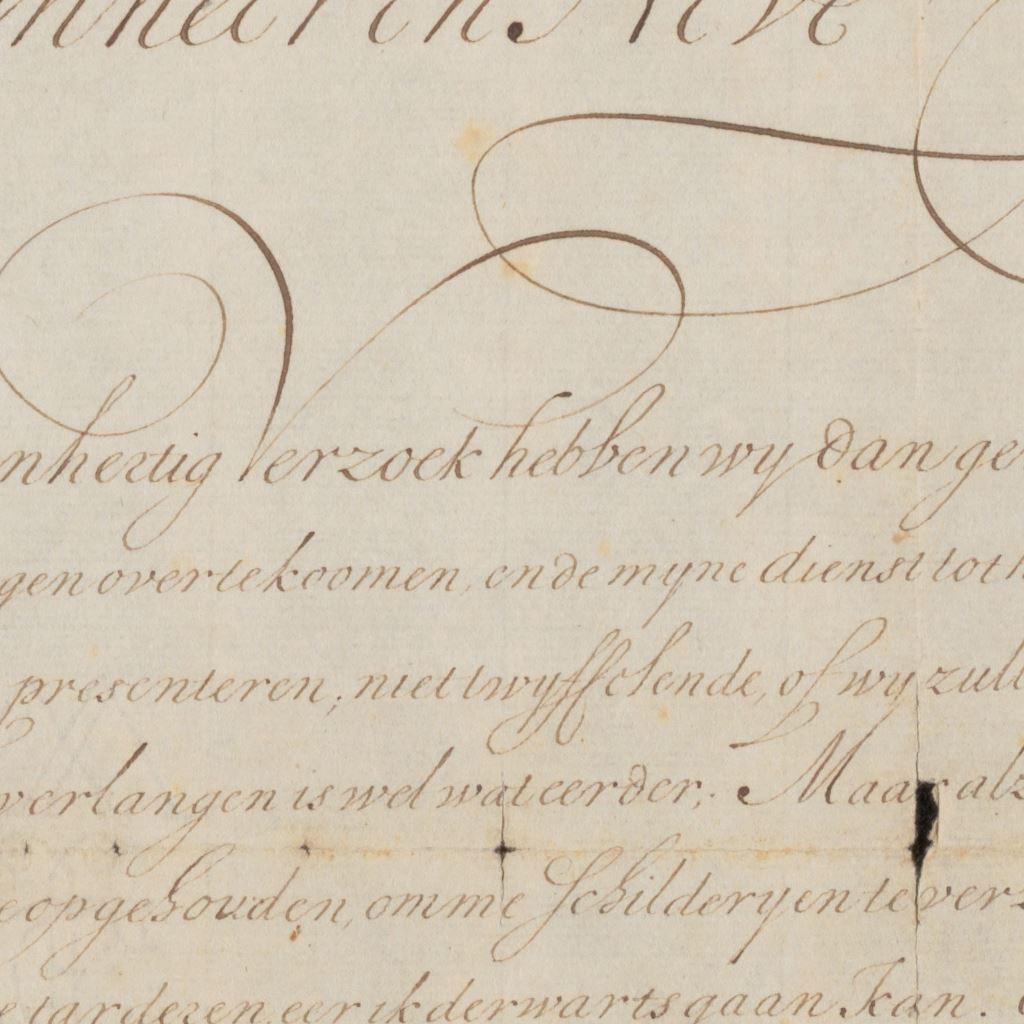 nhertig Verzoek hebben wy dan ge
gen over te koomen, ende myne dienst tot
presenteren; niet twyffelende, of wy zull
verlangen is wel wat eerder; Maar alz
opgehouden, omme Schilderyen te verz
dezen, eer ik derwarts gaan kan.